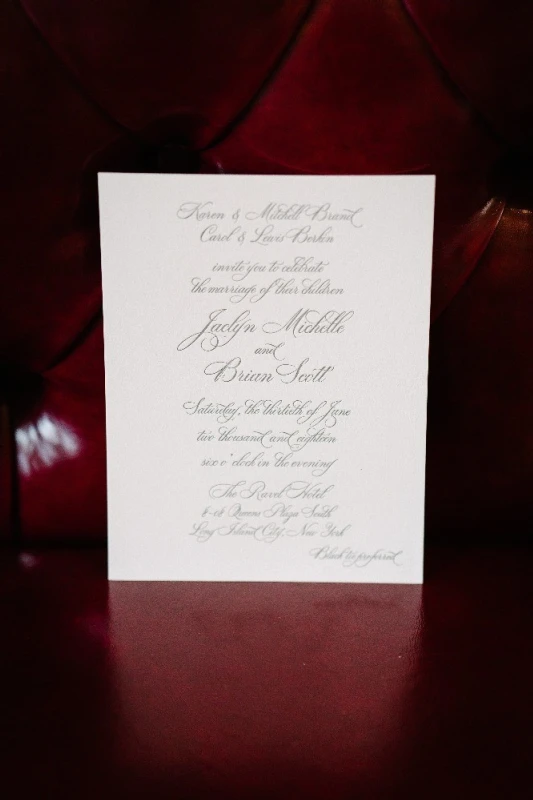 Karen & Mitchell Brand
Carol & Lewis Berkin
invite you to celebrate
the marriage of their children
Jaclyn Michelle
and
Brian Scott
Saturday, the thirtieth of June
two thousand and eighteen
six o'clock in the evening
The Ravel Hotel
8-08 Queens Plaza South
Long Island City, New York
Black tie preferred